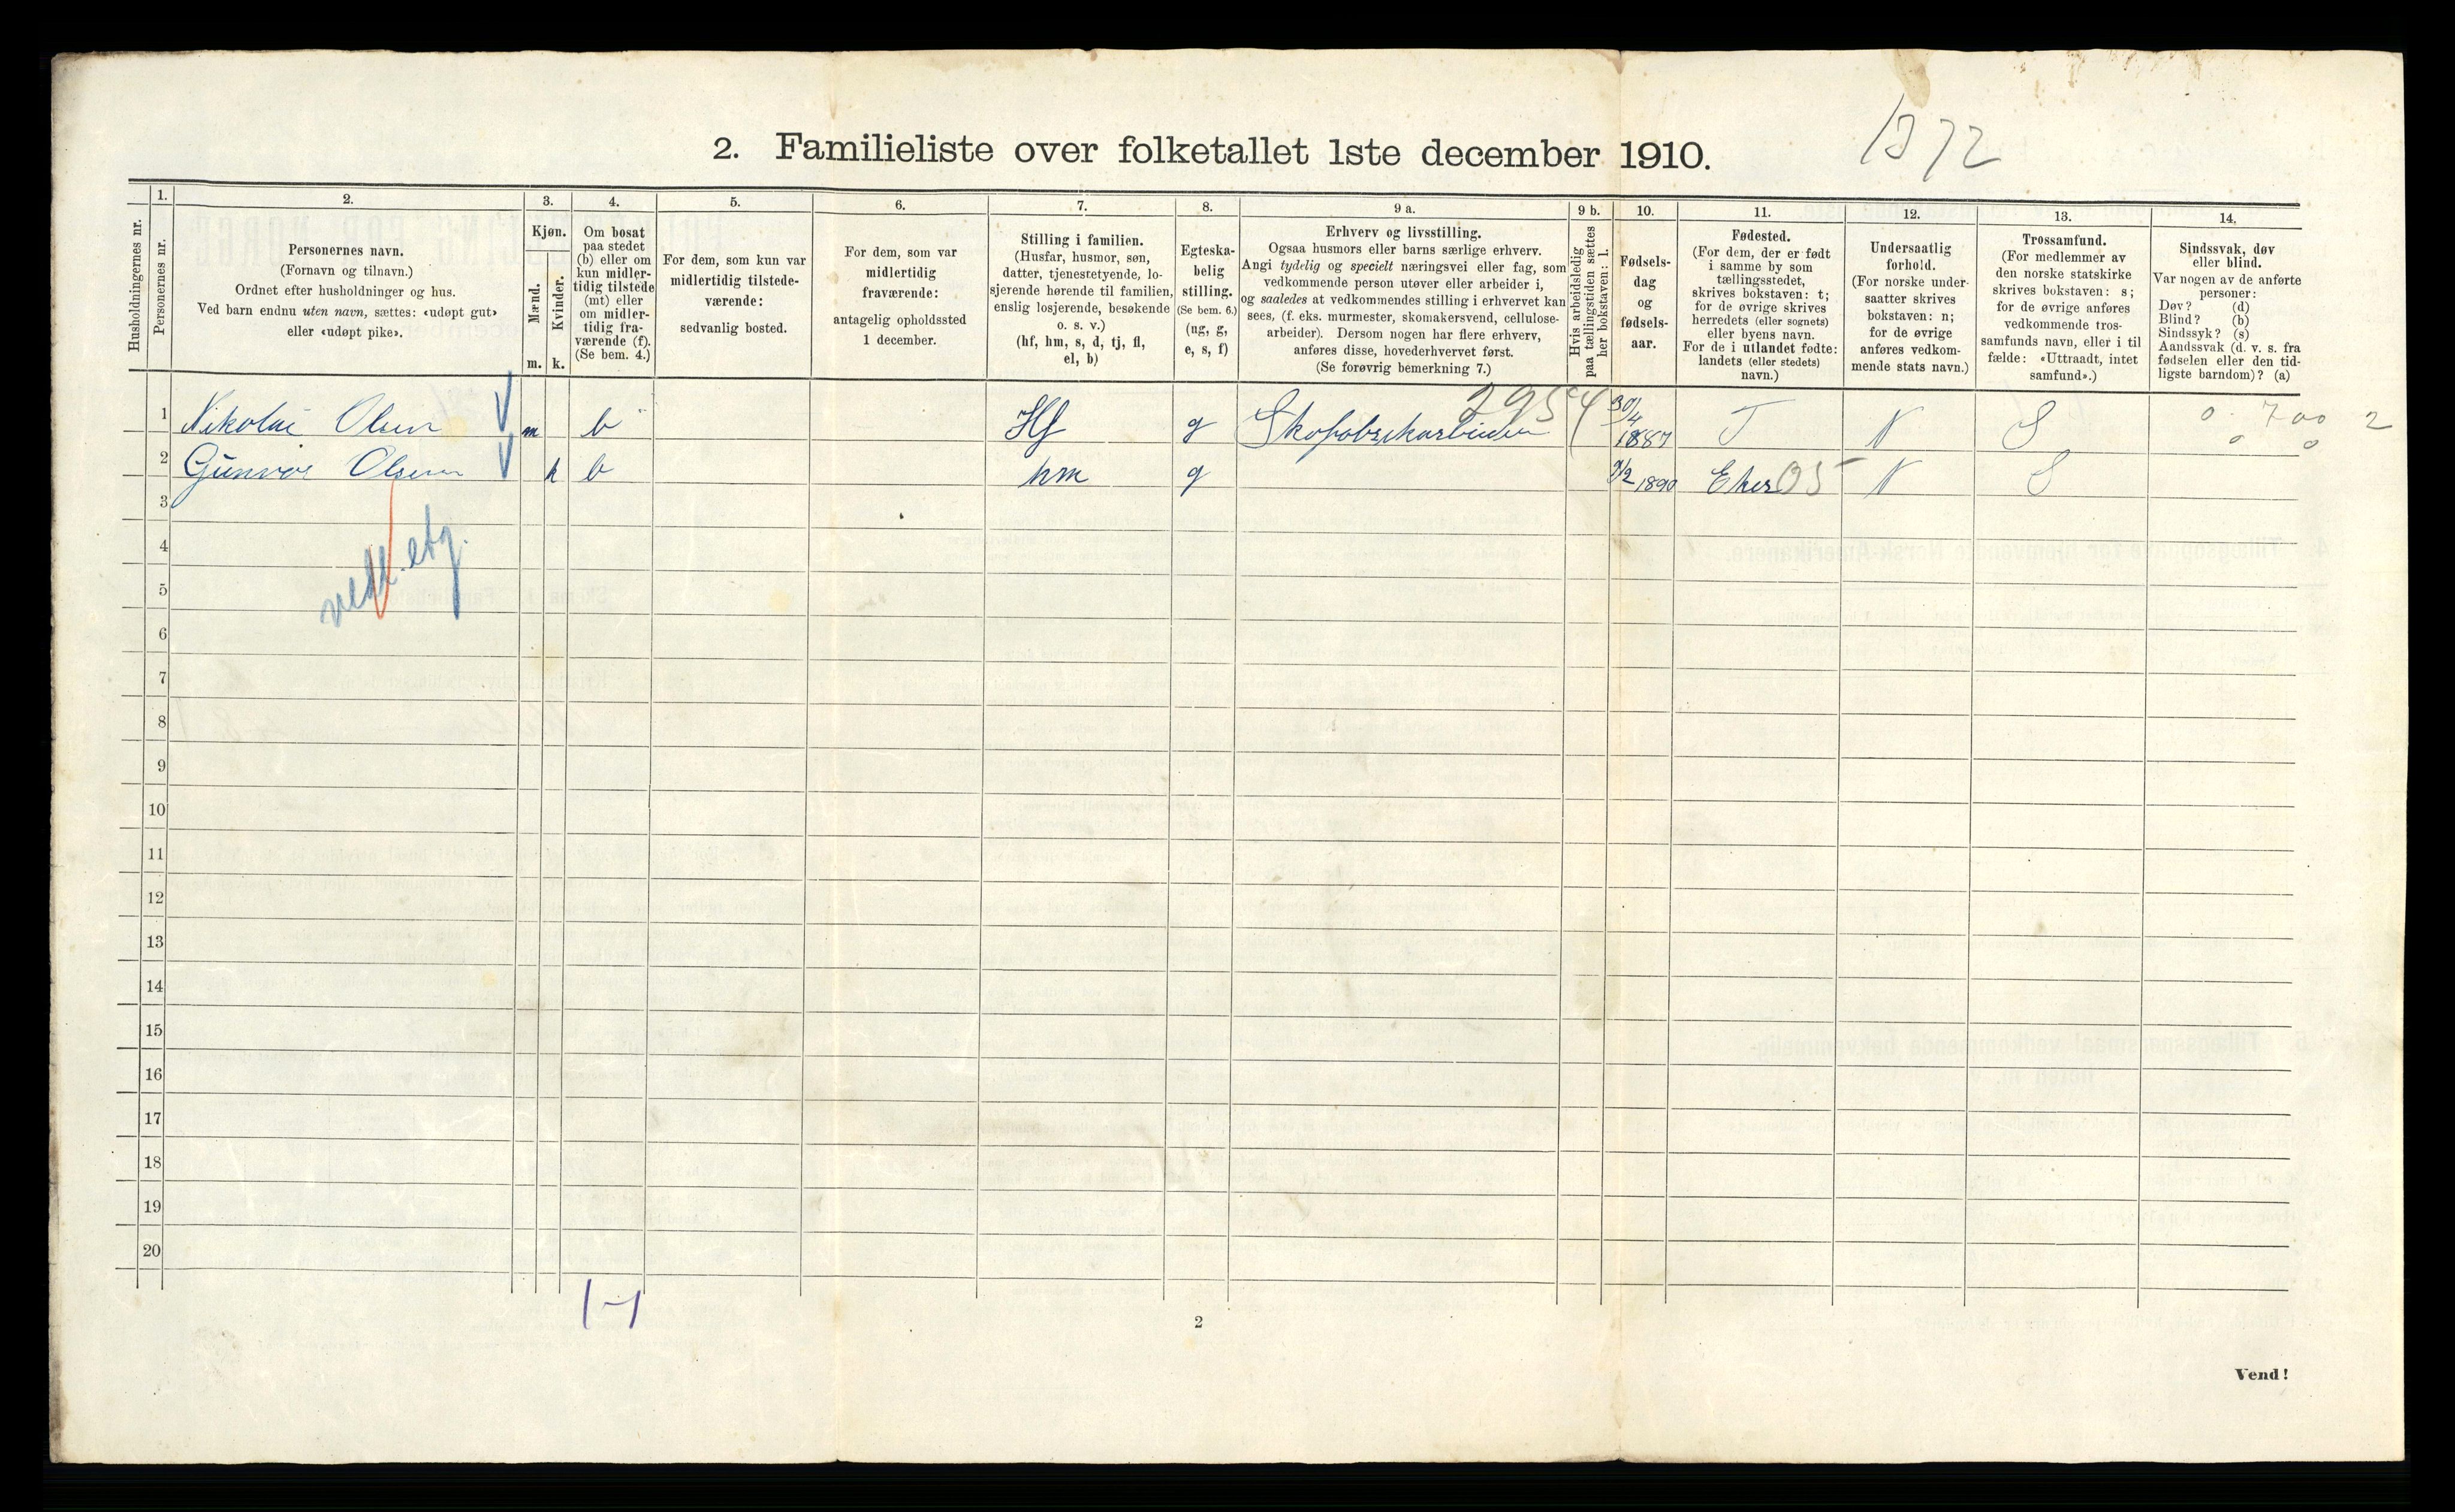 1372
2. Familieliste over folketallet 1ste december 1910.
Husholdningernes nr.
1.
Personernes nr.
2.
Personernes navn.
(Fornavn og tilnavn.)
Ordnet efter husholdninger og hus.
Ved barn endnu uten navn, sættes: «udøpt gut»
eller «udøpt pike».
3.
Kjøn.
Mænd.
Kvinder.
m. k.
4.
Om bosat
paa stedet
(b) eller om
kun midler-
tidig tilstede
(mt) eller
om midler-
tidig fra-
værende (f).
(Se bem. 4.)
5.
For dem, som kun var
midlertidig tilstede-
værende:
sedvanlig bosted.
6.
For dem, som var
midlertidig
fraværende:
antagelig opholdssted
1 december.
7.
Stilling i familien.
(Husfar, husmor, søn,
datter, tjenestetyende, lo-
sjerende hørende til familien,
enslig losjerende, besøkende
o. s. v.)
(hf, hm, s, d, tj, fl,
el, b)
8.
Egteska-
belig
stilling.
(Se bem. 6.)
(ug, g,
e, s, f)
9 a.
Erhverv og livsstilling.
Ogsaa husmors eller barns særlige erhverv.
Angi tydelig og specielt næringsvei eller fag, som
vedkommende person utøver eller arbeider i,
og saaledes at vedkommendes stilling i erhvervet kan
sees, (f. eks. murmester, skomakersvend, cellulose-
arbeider). Dersom nogen har flere erhverv,
anføres disse, hovederhvervet først.
(Se forøvrig bemerkning 7.)
9 b.
Hvis arbeidsledig
paa tællingstiden sættes
her bokstaven: l.
10.
Fødsels-
dag
og
fødsels-
aar.
11.
Fødested.
(For dem, der er født
i samme by som
tællingsstedet,
skrives bokstaven: t;
for de øvrige skrives
herredets (eller sognets)
eller byens navn.
For de i utlandet fødte:
landets (eller stedets)
navn.)
12.
Undersaatlig
forhold.
(For norske under-
saatter skrives
bokstaven: n;
for de øvrige
anføres vedkom-
mende stats navn.)
13.
Trossamfund.
(For medlemmer av
den norske statskirke
skrives bokstaven: s;
for de øvrige anføres
vedkommende tros-
samfunds navn, eller i til
fælde: «Uttraadt, intet
samfund».)
14.
Sindssvak, døv
eller blind.
Var nogen av de anførte
personer:
Døv? (d)
Blind? (b)
Sindssyk? (s)
Aandssvak (d. v. s. fra
fødselen eller den tid-
ligste barndom)? (a)
1 Nikolai Olsen m b Hf g Skofabrikarbeider 2954 30/4 1887 T N S 0 700 2
0 0
2 Gunvor Olsen k b hm g 9/2 1890 Eker 05 N S
3
4
5
6
7
8
9
10
11
12
13
14
15
16
17
18
19
20
vedk. etg.
1-1
2
Vend!